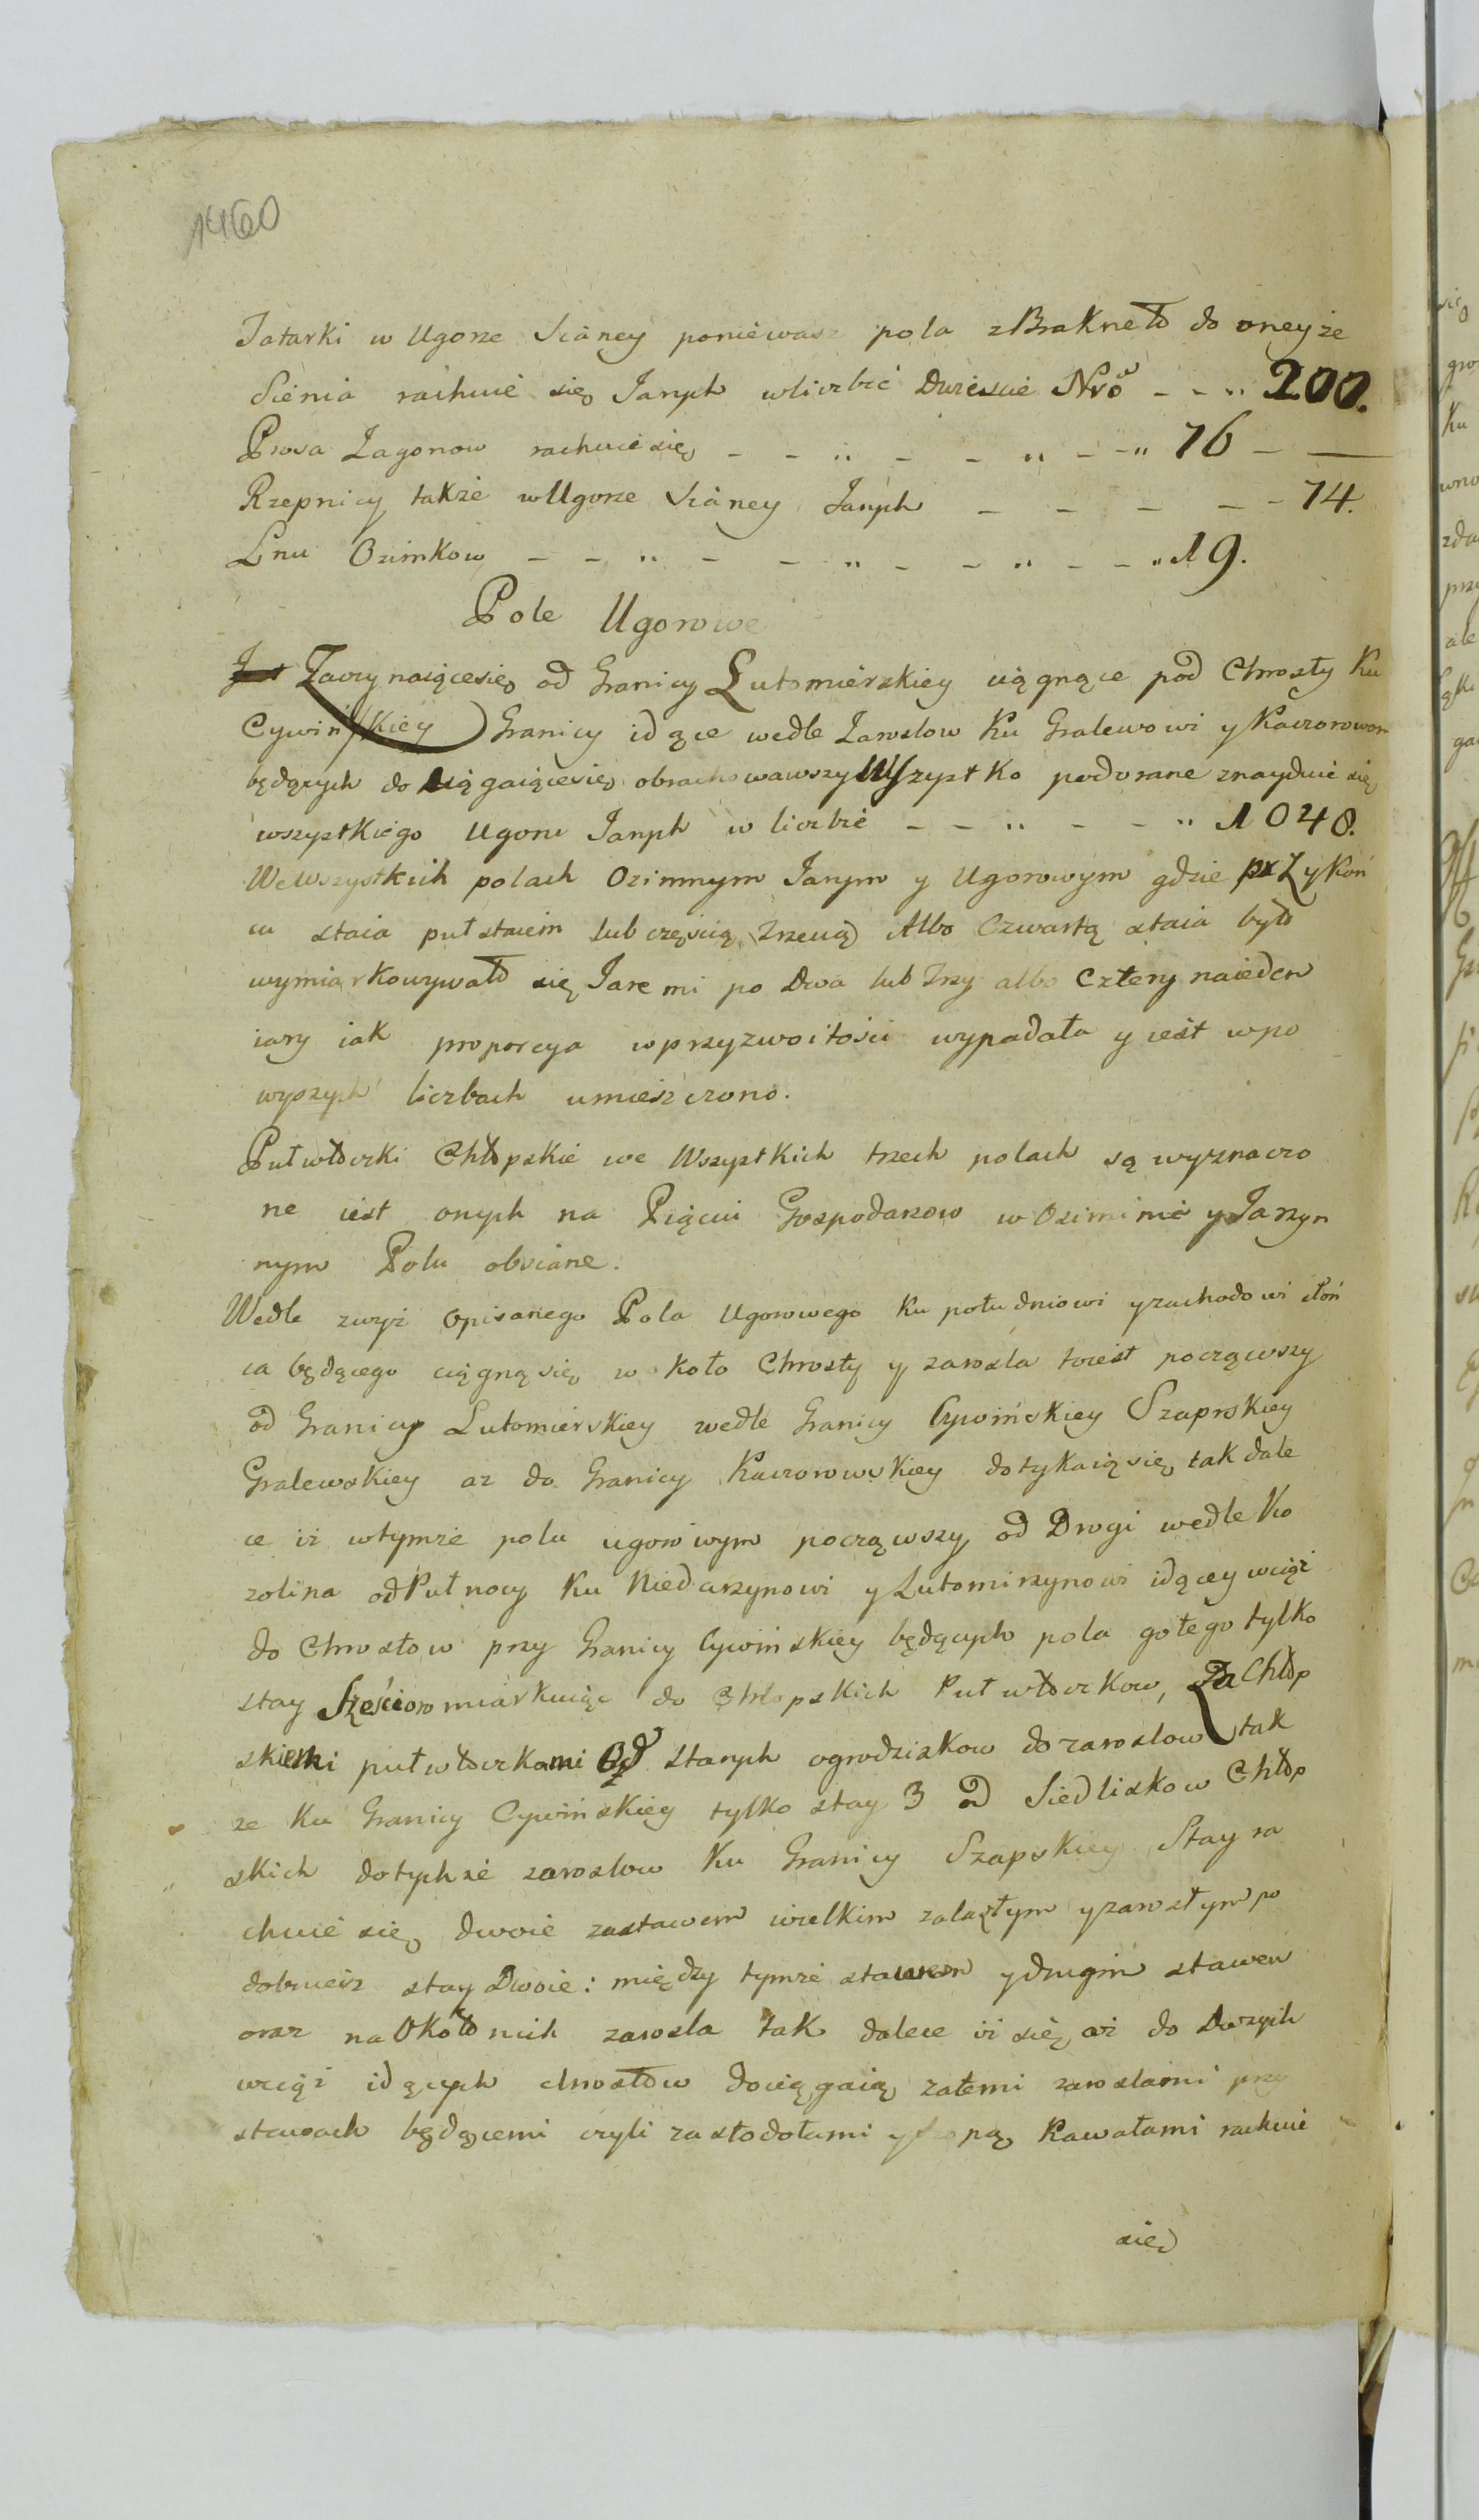 1460
Tatarki w Ugorze Sianey poniewasz pola zBraknęło do oneyże
Sienia rachuie się Janych wliczbie Dwiescie Nro - - " 200.
Prosa Zagonow rachuie się - - " - - " - - " 76 - —
Rzepnicy także wUgorze Sianey Janych - - - - - 74.
Lnu Ozimkow - - " - - " - - " - - " 19.
Pole Ugorowe
Zaczynaiącesię od Granicy Lutomierskiey ciągnące pod Chrosty Ku
Cywińskiey Granicy idące wedle Zaroslow Ku Gralewowi y Kaczorowom
będących do ciągaiącesię obrachowawszy Wszystko podorane znayduie się
wszystkiego Ugoru Janych w liczbie - - " - - " 1048.
WeWszystkich polach Ozimnym Jarym y Ugorowym gdzie przykoń
cu staia puł staiem lub częscią Trzecią Albo Czwartą staia było
wymiarkowywało się Jaremi po Dwa lub Trzy albo Cztery naieden
iary iak proporcya wprzyzwoitości wypadała y iest wpo
wyszych liczbach umieszczono.
Pułwłoczki Chłopskie we Wszystkich trzech polach są wyznaczo
ne iest onych na Pięciu Gospodarzow w Oziminie y Jarzyn
nym Polu obsiane.
Wedle zwyż Opisanego Pola Ugorowego Ku południowi yzachodowi słoń
ca będącego ciągną się w koło Chrosty y zarosla toiest począwszy
od Granicy Lutomierskiey wedle Granicy Cywińskiey Szapskiey
Gralewskiey az do Granicy Kaczorowskiey dotykaią się tak dale
ce iż wtymże polu ugorowym począwszy od Drogi wedle Ko
zolina odPułnocy Ku Niedarzynowi y Lutomirzynowi idącey wciąż
do Chrostow przy Granicy Cywińskiey będących pola gołego tylko
stay Sześcioro miarkuiąc do Chłopskich Pułwłoczkow, Za Chłop
skiemi pułwłoczkami Od Starych ogrodziskow do zaroslow tak
ze Ku Granicy Cywińskiey tylko stay 3 od Siedliskow Chłop
skich dotychże zaroslow Ku Granicy Szapskiey Stay ra
chuie się dwoie zastawem wielkim zalazłym yzarosłym po
dobniesz stay Dwoie: między tymże stawem ydrugim stawem
oraz naOkoło nich zarosla Tak dalece iż się aż do Dwzych
wciąż idących chrostow dociągaią zatemi zaroslami przy
stawach będącemi czyli zastodołami y pą Kawałami rachuie
się